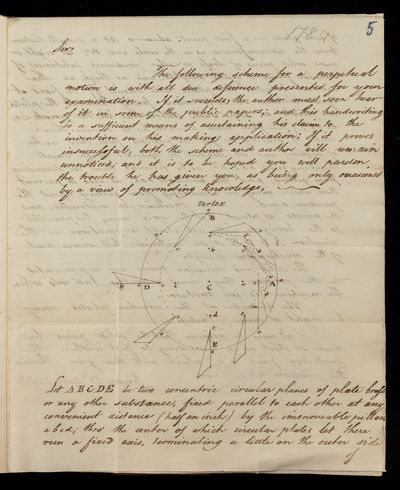 5
1784
Sir,
The following scheme for a perpetual
motion is with all due defference presented for your
examination. If it succeeds, the author must soon hear
of it in some of the public papers, and this handwriting
be a sufficient means of ascertaining his claim to the
invention on his making application; If it proves
insuccessful, both the scheme and author will remain
unnoticed, and it is to be hoped you will pardon
the trouble he has given you, as being only occasioned
by a view of promoting knowledge,
Vertex
B
b
g D C A
d
E
Let ABCDE be two concentric circular planes of plate brass
or any other substance, fixed parallel to each other at any
convenient distance (half an inch) by the immoveable pillars
abcd; thro' the center of which circular plates let there
run a fixed axis, terminating a little on the outer side
of